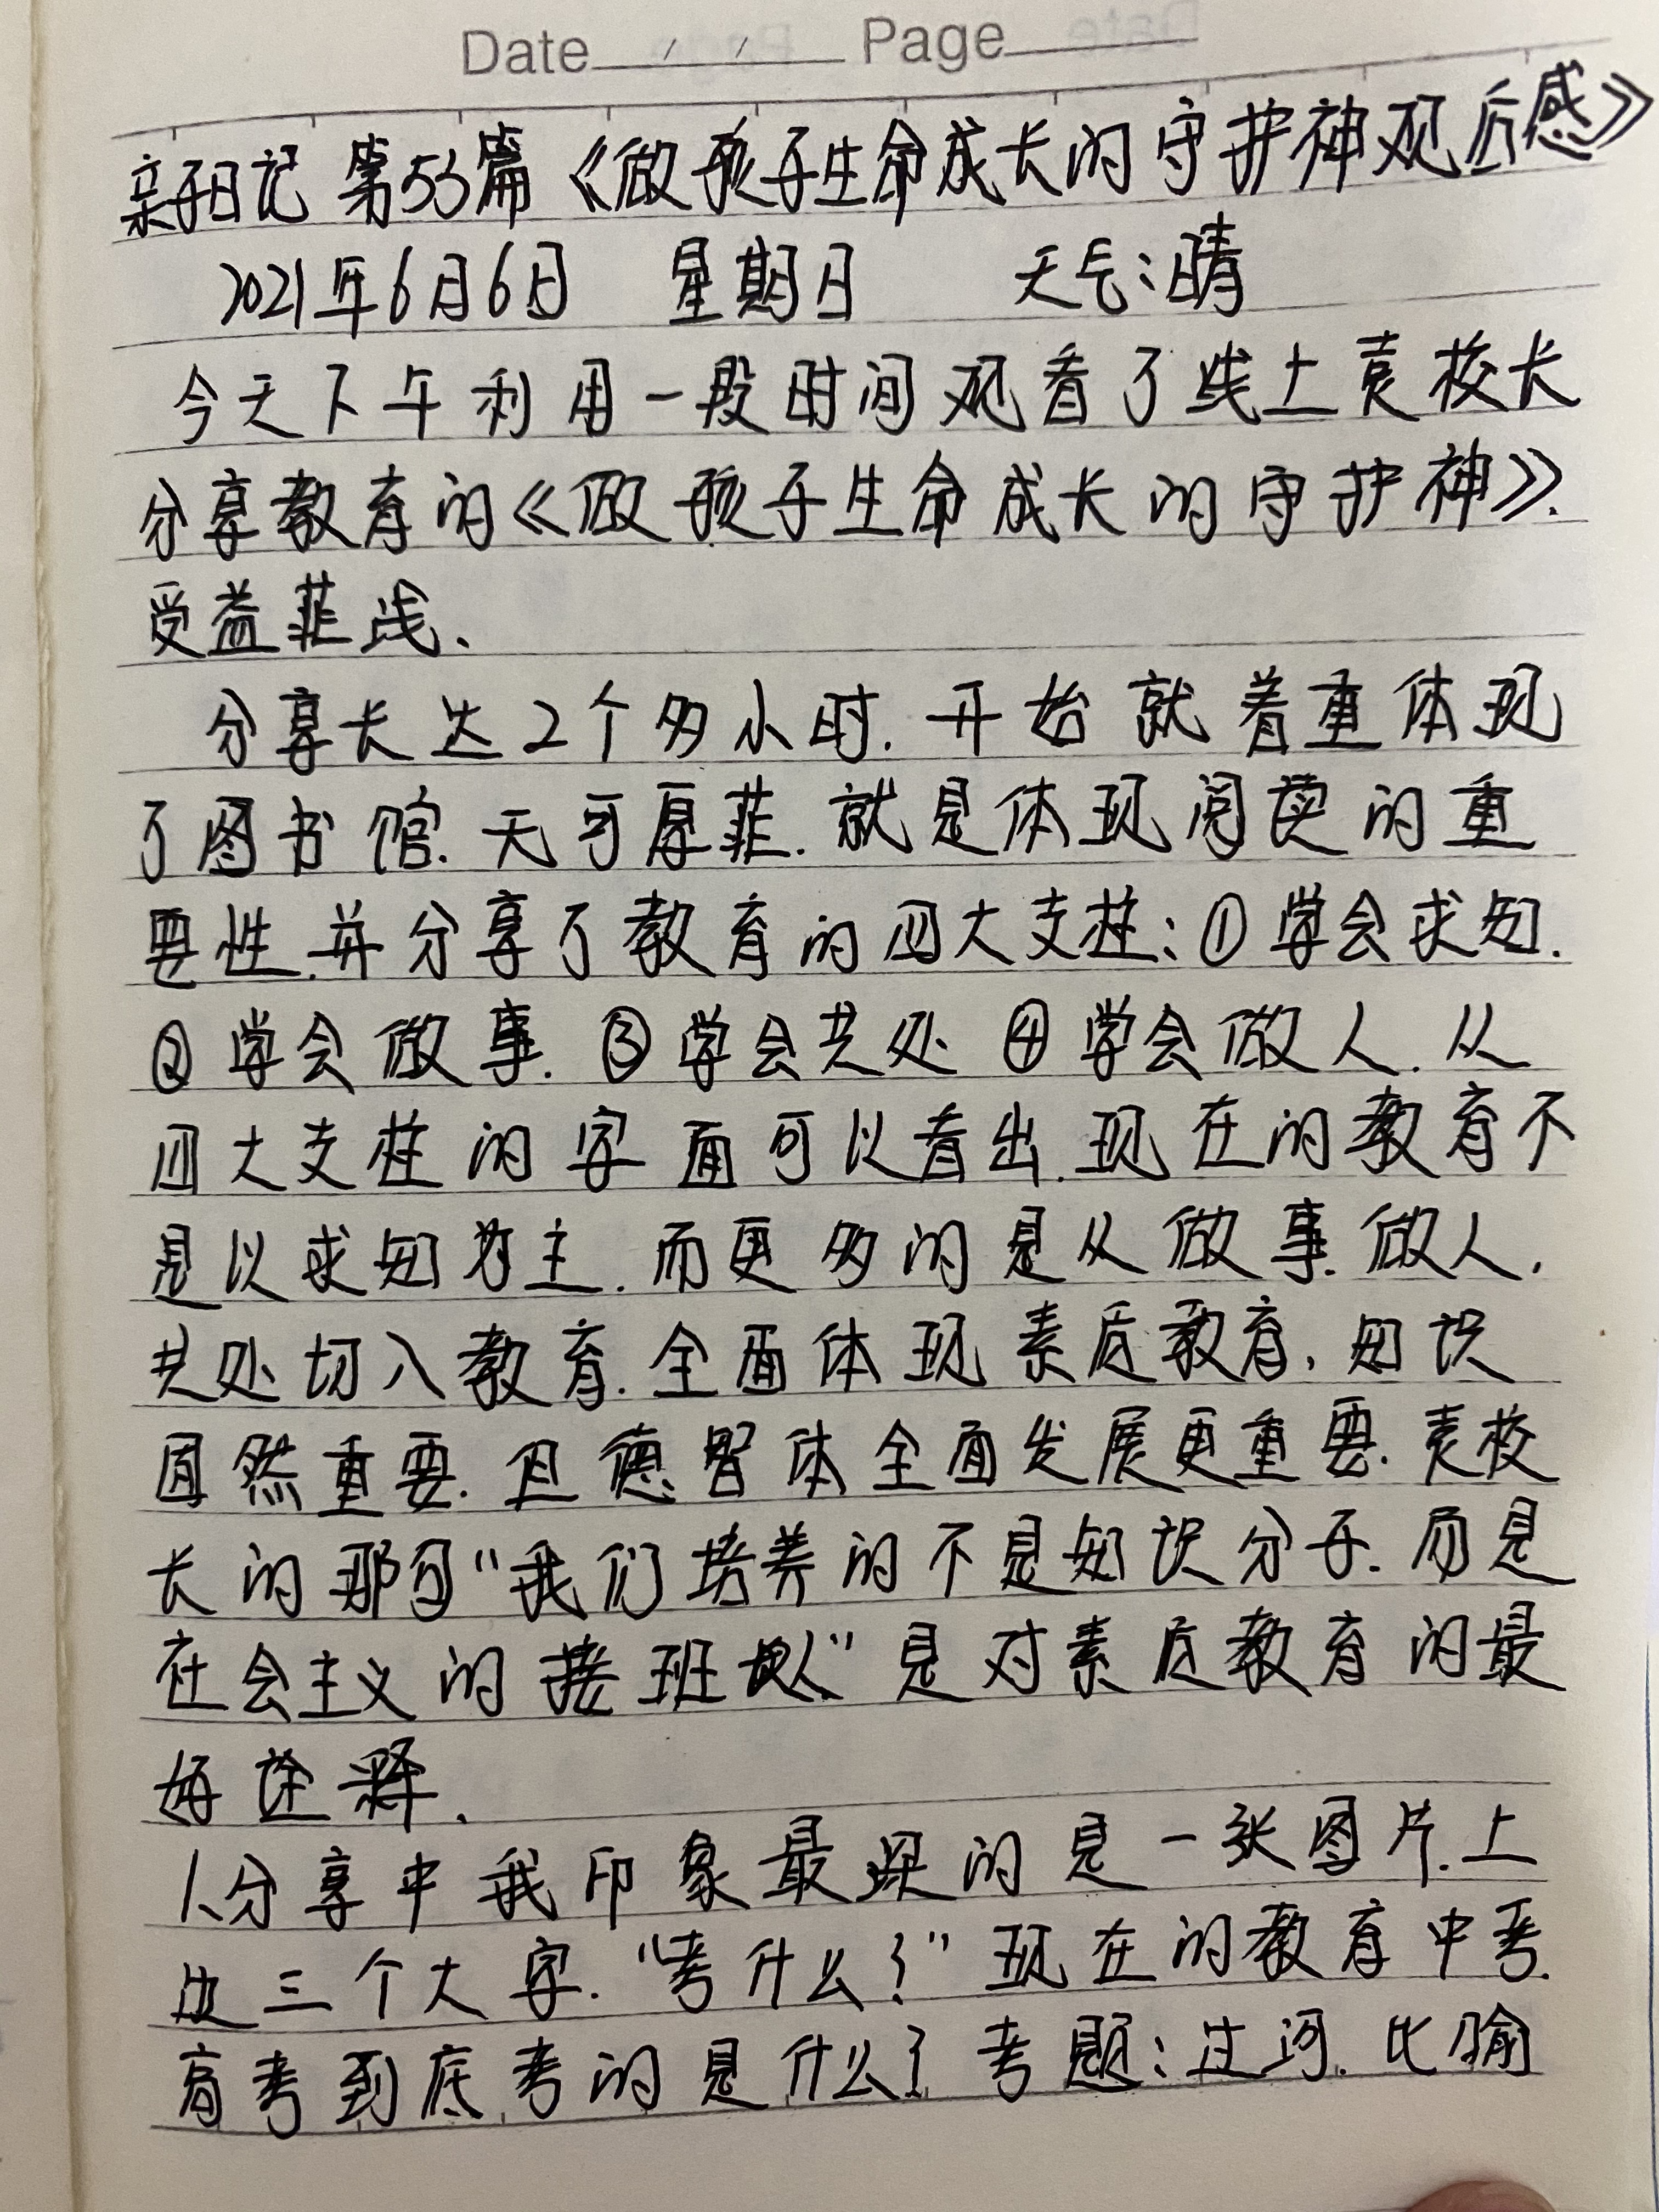 Date / / Page
亲子日记 第53篇《做孩子生命成长的守护神观后感》
2021年6月6日 星期日 天气:晴
今天下午利用一段时间观看了线上袁校长
分享教育的《做孩子生命成长的守护神》.
受益菲浅、
分享长达2个多小时.开始就着重体现
了图书馆.无可厚菲.就是体现阅读的重
要性.并分享了教育的四大支柱:①学会求知.
②学会做事.③学会共处 ④学会做人.从
四大支柱的字面可以看出.现在的教育不
是以求知为主.而更多的是从做事.做人.
共处切入教育.全面体现素质教育.知识
固然重要.但德智体全面发展更重要.袁校
长的那句"我们培养的不是知识分子.而是
社会主义的接班人"是对素质教育的最
好诠释、
1、分享中我印象最深的是一张图片.上
边三个大字."考什么?"现在的教育中考.
高考到底考的是什么?考题:过河.比喻